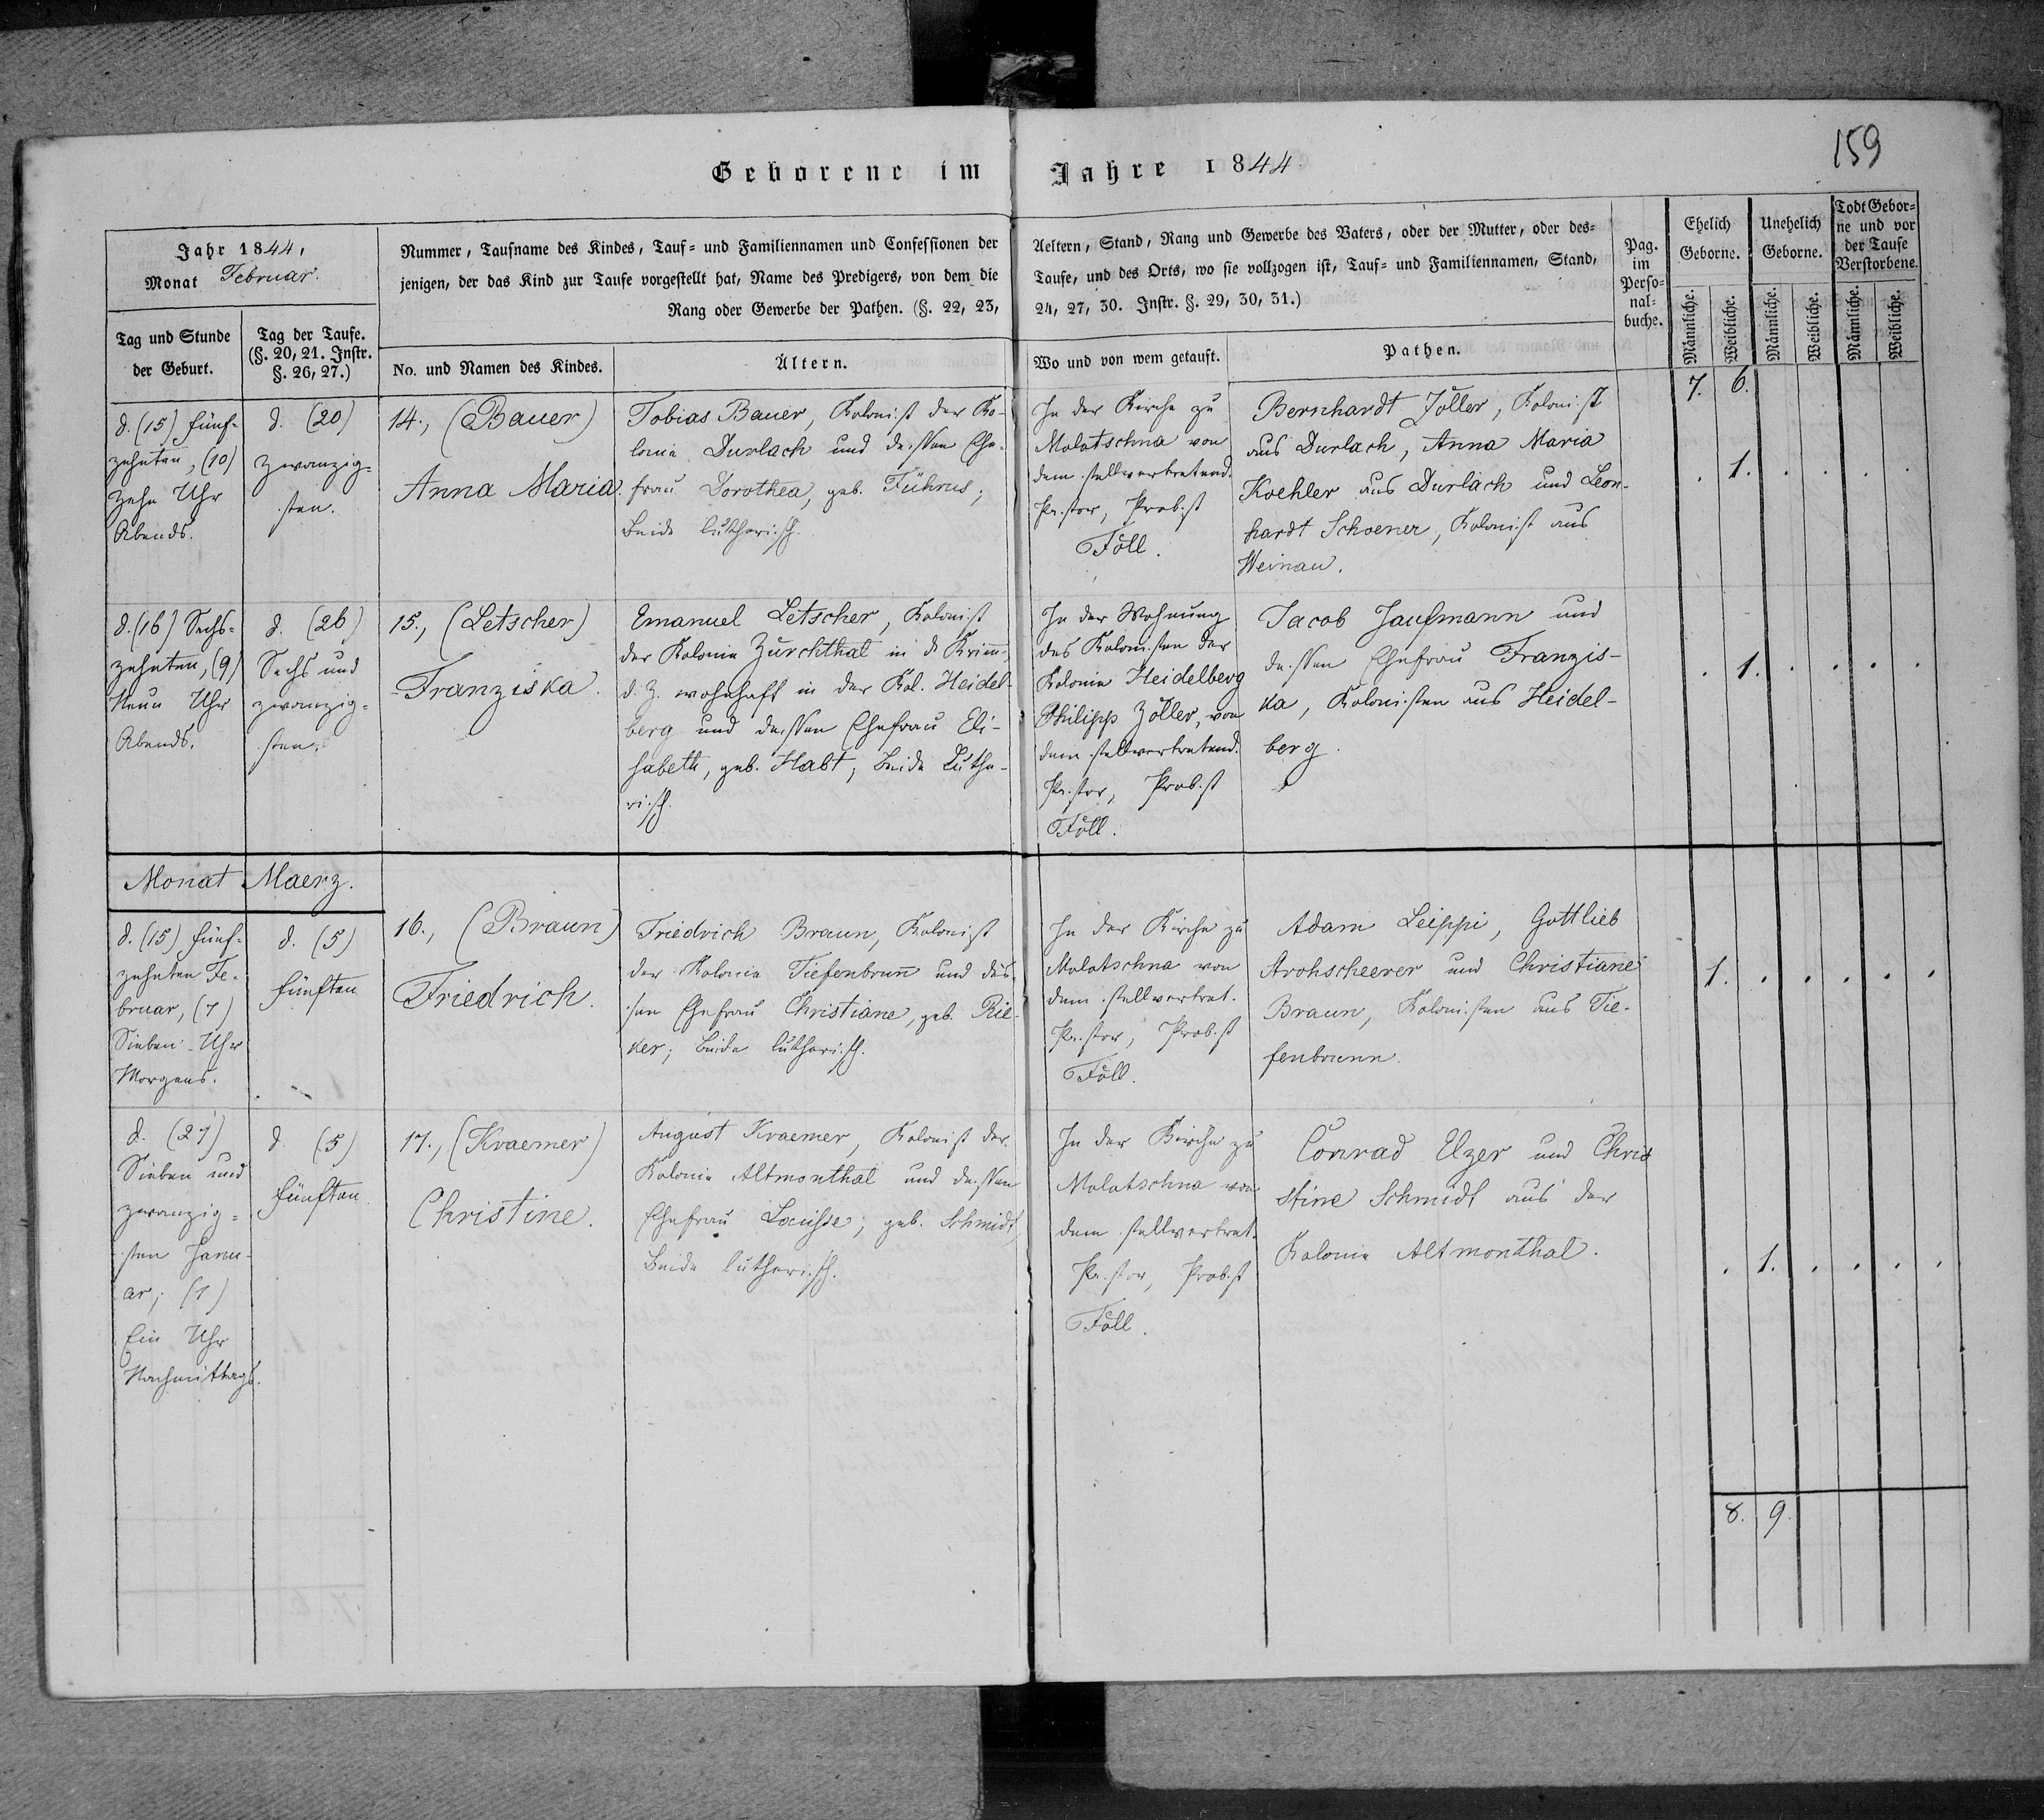 159
Geborene im Jahre 1844.
Jahr 1844,
Monat Februar.
Tag und Stunde
der Geburt.
Tag der Taufe.
(§. 20, 21. Instr.
§. 26, 27.)
Nummer, Taufname des Kindes, Tauf- und Familiennamen und Confessionen der
jenigen, der das Kind zur Taufe vorgestellt hat, Name des Predigers, von dem die
Rang oder Gewerbe der Pathen. (§. 22, 23,
No. und Namen des Kindes.
Ältern.
Aeltern, Stand, Rang und Gewerbe des Vaters, oder der Mutter, oder des-
Taufe, und des Orts, wo sie vollzogen ist, Tauf- und Familiennamen, Stand,
24, 27, 30. Instr. §. 29, 30, 31.)
Wo und von wem getauft.
Pathen.
Pag.
im
Perso-
nal-
buche.
Ehelich
Geborne.
Unehelich
Geborne.
Todt Gebor-
ne und vor
der Taufe
Verstorbene.
Männliche.
Weibliche.
Männliche.
Weibliche.
Männliche.
Weibliche.
7. 6.
d. (15) fünf-
zehnten, (10)
Zehn Uhr
Abends.
d. (20)
zwanzig-
sten.
14., (Bauer)
Anna Maria.
Tobias Bauer, Kolonist der Ko-
lonie Durlach und dessen Ehe-
frau Dorothea, geb. Führus;
Beide lutherisch.
In der Kirche zu
Molotschna von
dem stellvertretend.
Pastor, Probst
Föll.
Bernhardt Joller, Kolonist
aus Durlach, Anna Maria
Koehler aus Durlach und Leon-
hardt Schoener, Kolonist aus
Weinau.
. 1. . . . .
d. (16) Sechs-
zehnten, (9)
Neun Uhr
Abends.
d. (26)
Sechs und
zwanzig-
sten.
15., (Letscher)
Franziska.
Emanuel Letscher, Kolonist
der Kolonie Zürchthal in d. Krimm,
d. Z. wohnhaft in der Kol. Heidel-
berg und dessen Ehefrau Eli-
sabeth, geb. Habt; Beide Luthe-
risch.
In der Wohnung
des Kolonisten der
Kolonie Heidelberg
Philipp Zoller, von
dem stellvertretend.
Pastor, Probst
Föll.
Jacob Jaufmann und
dessen Ehefrau Franzis-
ka, Kolonisten aus Heidel-
berg.
. 1. . . . .
Monat Maerz.
d. (15) fünf-
zehnten Fe-
bruar, (7)
Sieben Uhr
Morgens.
d. (5)
fünften
16., (Braun)
Friedrich.
Friedrich Braun, Kolonist
der Kolonie Tiefenbrunn und des-
sen Ehefrau Christiane, geb. Rie-
ker; Beide lutherisch.
In der Kirche zu
Molotschna von
dem stellvertret.
Pastor, Probst
Föll.
Adam Leippi, Gottlieb
Strohscheerer und Christiane
Braun, Kolonisten aus Tie-
fenbrunn.
1. . . . . .
d. (27)
Sieben und
zwanzig-
sten Janu-
ar; (1)
Ein Uhr
Nachmittags.
d. (5)
fünften
17., (Kraemer)
Christine.
August Kraemer, Kolonist der
Kolonie Altmonthal und dessen
Ehefrau Louise; geb. Schmidt,
Beide lutherisch.
In der Kirche zu
Molotschna von
dem stellvertret.
Pastor, Probst
Föll.
Conrad Elzer und Chris
stine Schmidt aus der
Kolonie Altmonthal.
. 1. . . . .
8. 9.